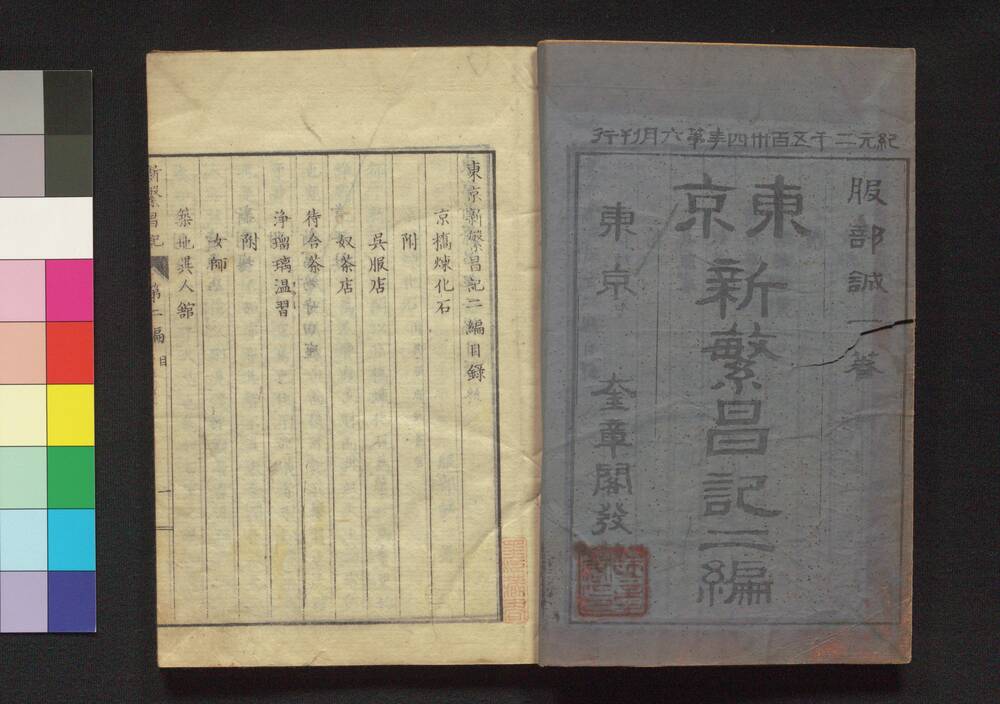 紀元二千五百卅四年第六月刋行
服部誠一著
東京
新繁昌記二編
東京 奎章閣發
東京新繁昌記二編目録
京橋煉化石
附
呉服店
奴茶店
待合茶店
浄瑠璃温習
附
女師
築地異人館
新繁昌記 第二編 目 一